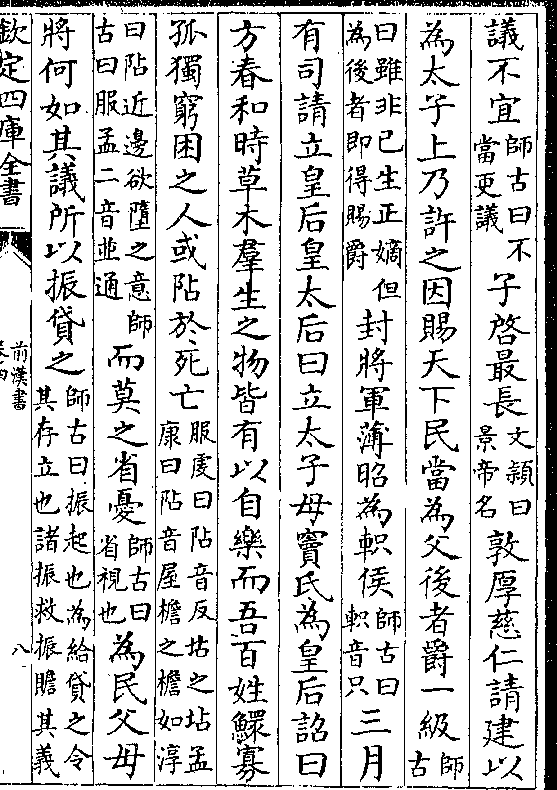 議不宜師古曰不當更議子啓最長文頴曰景帝名敦厚慈仁請建以
為太子上乃許之因賜天下民當為父後者爵一級師古
曰雖非己生正嫡但為後者即得賜爵封將軍薄昭為軹侯師古曰軹音只三月
有司請立皇后皇太后曰立太子母竇氏為皇后詔曰
方春和時草木羣生之物皆有以自樂而吾百姓鰥寡
孤獨窮困之人或阽於死亡服虔曰阽音反坫之坫孟康曰阽音屋檐之檐如淳
曰阽近邊欲墮之意師古曰服孟二音並通而莫之省憂師古曰省視也為民父母
將何如其議所以振貸之師古曰振起也為給貸之令其存立也諸振救振贍其義
欽定四庫全書
前漢書
卷四
八